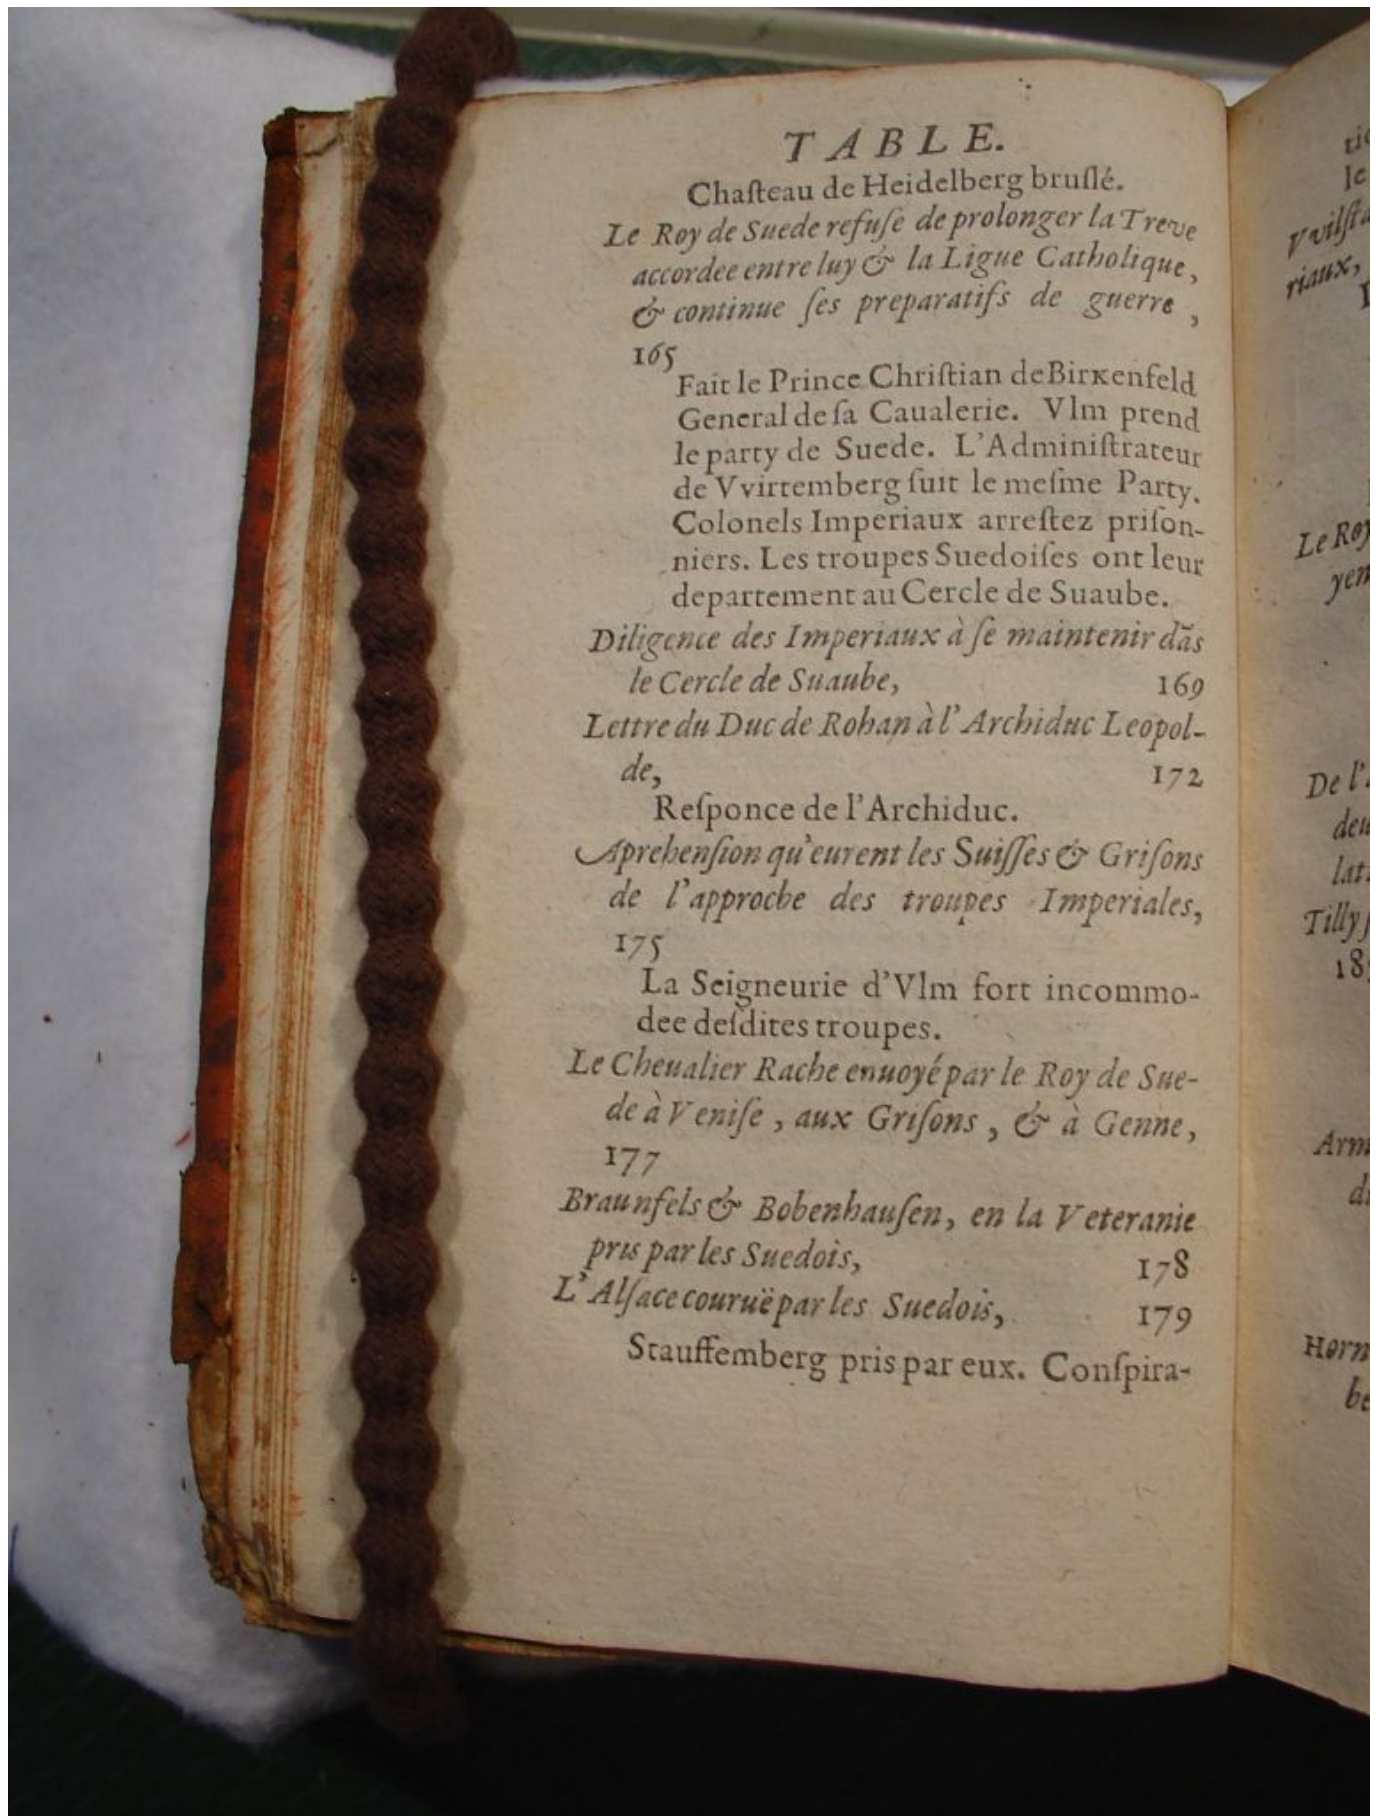 TABLE.
Chaſteau de Heidelberg bruſlé.
Le Roy de Suede refuſe de prolonger la Treve
accordee entre luy & la Ligue Catholique,
& continue ſes preparatifs de guerre,
165
Fait le Prince Chriſtian de Birxenfeld
General de ſa Caualerie. Vlm prend
le party de Suede. L'Adminiſtrateur
de Vvirtemberg ſuit le meſme Party.
Colonels Imperiaux arreſtez priſon-
niers. Les troupes Suedoiſes ont leur
departement au Cercle de Suaube.
Diligence des Imperiaux à ſe maintenir dãs
le Cercle de Suaube, 169
Lettre du Duc de Rohan à l'Archiduc Leopol-
de, 172
Reſponce de l'Archiduc.
Aprehenſion qu'eurent les Suiſſes & Griſons
de l'approche des troupes Imperiales,
175
La Seigneurie d'Vlm fort incommo-
dee deſdites troupes.
Le Cheualier Rache enuoyé par le Roy de Sue-
de à Veniſe, aux Griſons, & à Genne,
177
Braunfels & Bobenhauſen, en la Veteranie
pris par les Suedois, 178
L'Alſace couruë par les Suedois, 179
Stauffemberg pris par eux. Conſpira-
Vvilſta
riaux,
Le Roy
yen
De l'
deu
lat
Tilly
18
Arm
Horn
be